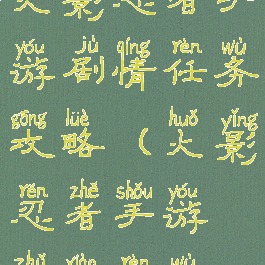 yóu jù qíng rèn wù
游剧情任务
gōng lüè huǒ yǐng
攻略（火影
rěn zhě shǒu yóu
忍者手游